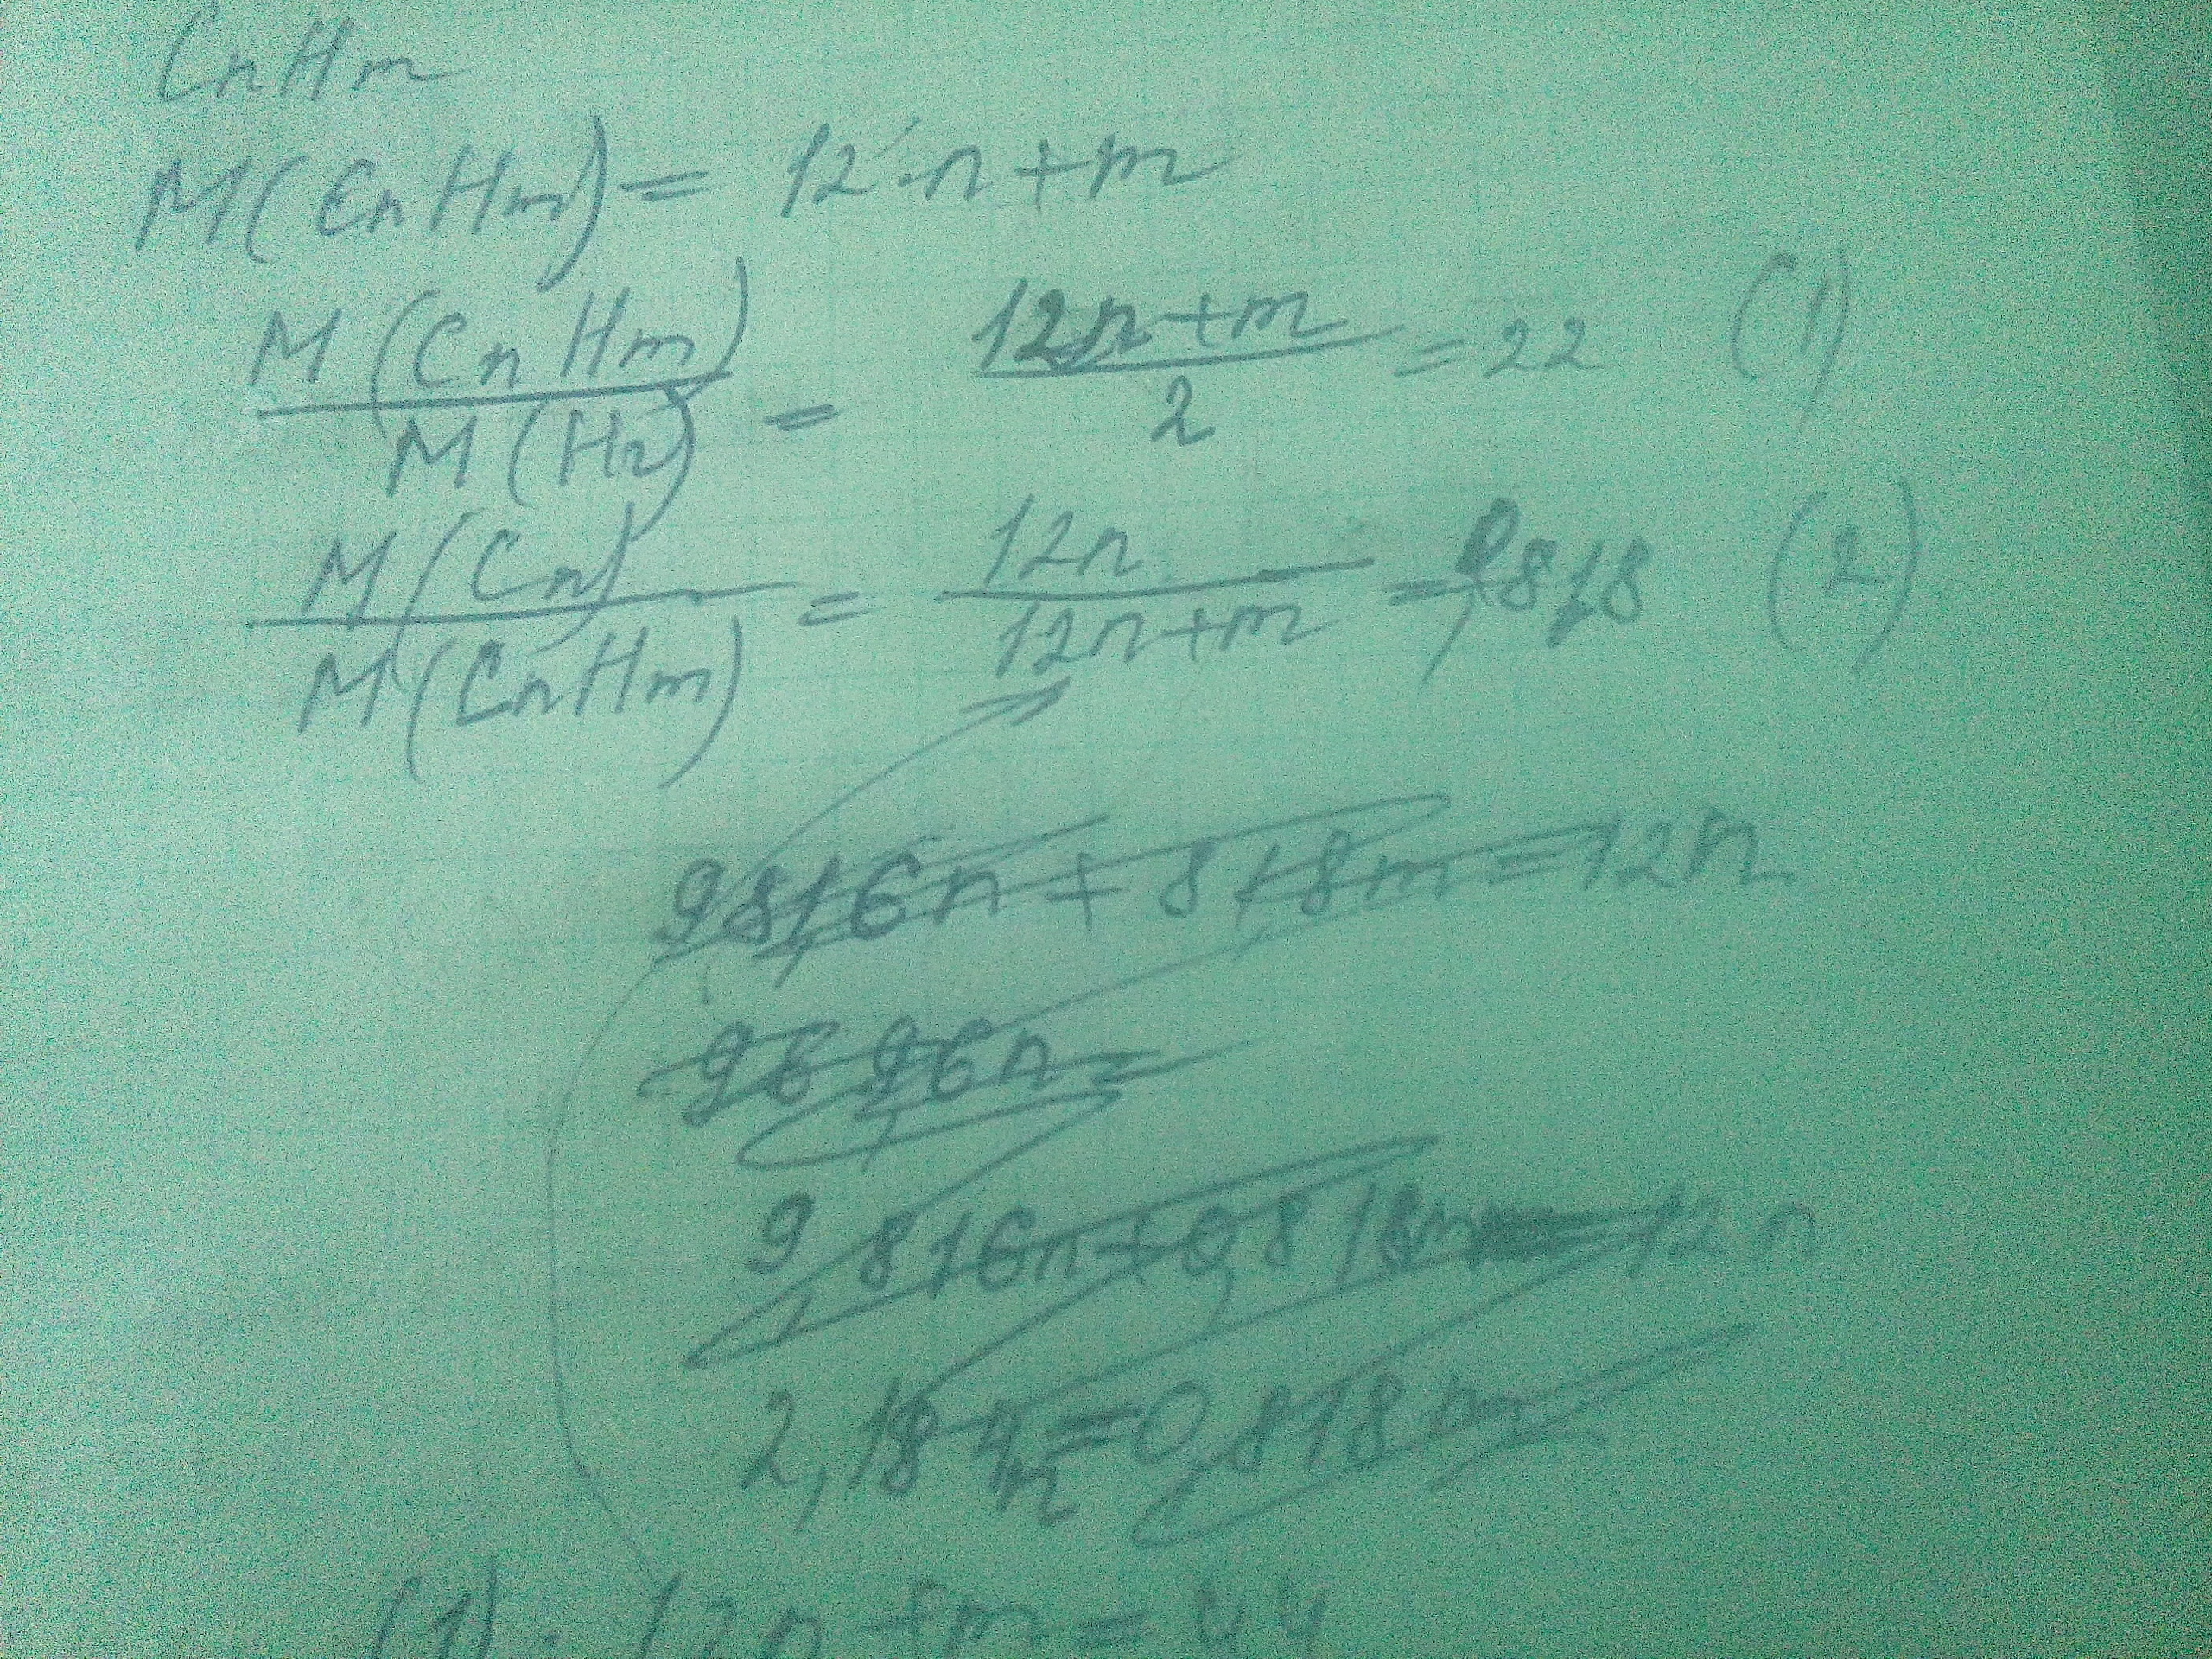 CnHm
M(CnHm) = 12·n+m
M(CnHm)/M(H2) = (12n+m)/2 = 22 (1)
M(Cn)/M(CnHm) = 12n/(12n+m) = 0,818 (2)
9816n + 818m = 12n
9,816n+0,818m = 12n
2,184n=0,818m
(1). 12n+m=44